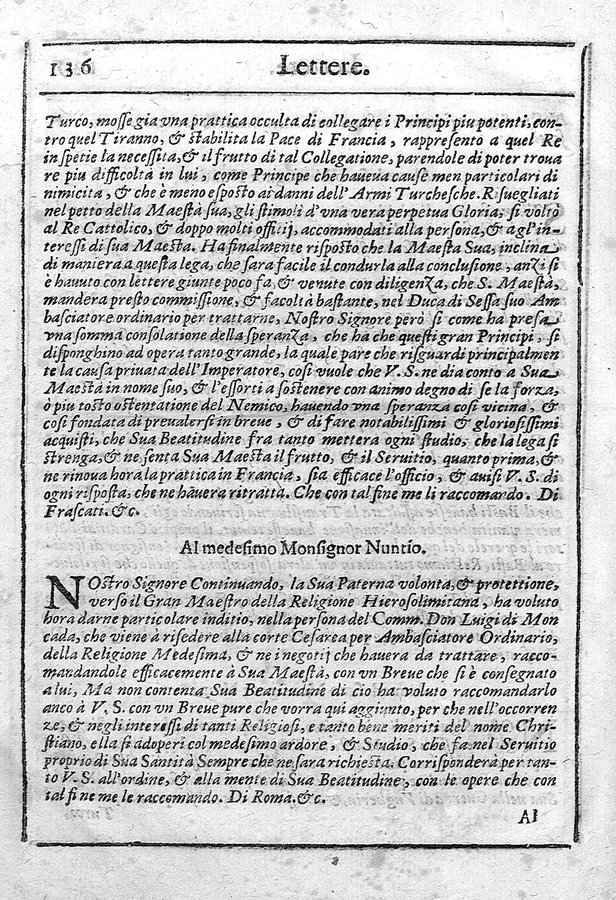 136 Lettere.
Turco, mosse gia vna prattica occulta di collegare i Principi piu potenti, con-
tro quel Tiranno, & stabilita la Pace di Francia, rappresento a quel Re
in spetie la necessita, & il frutto di tal Collegatione, parendole di poter troua
re piu difficoltà in lui, come Principe che haueua cause men particolari di
nimicita, & che è meno esposto ai danni dell' Armi Turchesche. Risuegliati
nel petto della Maestà sua, gli stimoli d'vna vera perpetua Gloria, si voltò
al Re Cattolico, & doppo molti offitij, accommodati alla persona, & agl'in-
teressi di sua Maestà. Ha finalmente risposto che la Maesta Sua, inclina
di maniera a questa lega, che sara facile il condurla alla conclusione, anzi si
è hauuto con lettere giunte poco fa, & venute con diligenza, che S. Maestà,
mandera presto commissione, & facoltà bastante, nel Duca di Sessa suo Am
basciatore ordinario per trattarne, Nostro Signore però si come ha presa
vna somma consolatione della speranza, che ha che questi gran Principi, si
disponghino ad opera tanto grande, la quale pare che risguardi principalmen
te la causa priuata dell'Imperatore, cosi vuole che V. S. ne dia conto a Sua
Maestà in nome suo, & l'essorti a sostenere con animo degno di se la forza,
ò piu tosto ostentatione del Nemico, hauendo vna speranza cosi vicina, &
cosi fondata di preualersi in breue, & di fare notabilissimi & gloriosissimi
acquisti, che Sua Beatitudine fra tanto metterà ogni studio, che la lega si
strenga, & ne senta Sua Maesta il frutto, & il Seruitio, quanto prima, &
ne rinoua hora la prattica in Francia, sia efficace l'officio, & auisi V. S. di
ogni risposta, che ne hauera ritratta. Che con tal fine me li raccomando. Di
Frascati. &c.
Al medesimo Monsignor Nuntio.
NOstro Signore Continuando, la Sua Paterna volonta, & protettione,
verso il Gran Maestro della Religione Hierosolimitana, ha voluto
hora darne particolare inditio, nella persona del Comm. Don Luigi di Mon
cada, che viene à risedere alla corte Cesarea per Ambasciatore Ordinario,
della Religione Medesima, & ne i negotij che hauera da trattare, racco-
mandandole efficacemente à Sua Maestà, con vn Breue che si è consegnato
a lui, Ma non contenta Sua Beatitudine di cio ha voluto raccomandarlo
anco à V. S. con vn Breue pure che vorra qui aggiunto, per che nell'occorren
ze, & negli interessi di tanti Religiosi, e tanto bene meriti del nome Chri-
stiano, ella si adoperi col medesimo ardore, & Studio, che fa nel Seruitio
proprio di Sua Santità Sempre che ne sara richiesta. Corrisponderà per tan-
to V. S. all'ordine, & alla mente di Sua Beatitudine, con le opere che con
tal fine me le raccomando. Di Roma. &c.
Al